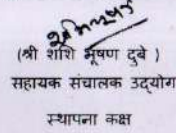 (श्री शशि भूषण दुबे )
सहायक संचालक उद्योग
स्थापना कक्ष